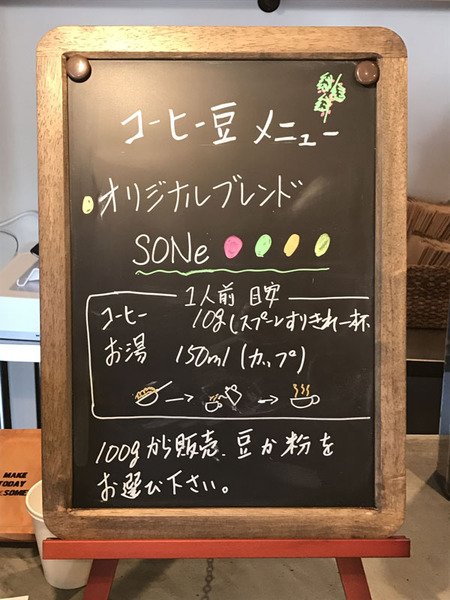 コーヒー豆 メニュー
オリジナルブレンド
SONe
1人前 目安
コーヒー 10g(スプーンすりきれ一杯
お湯 150ml(カップ)
100gから販売、豆か粉を
お選び下さい。
MAKE
TODAY
SOME